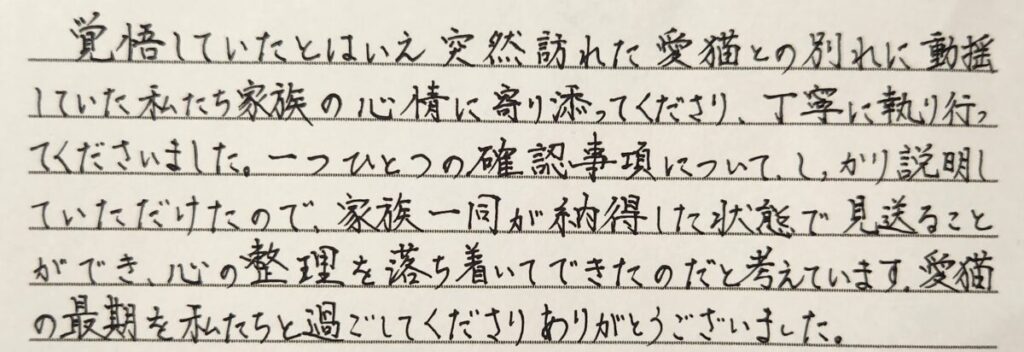 覚悟していたとはいえ突然訪れた愛猫との別れに動揺
していた私たち家族の心情に寄り添ってくださり、丁寧に執り行っ
てくださいました。一つひとつの確認事項について、しっかり説明し
ていただけたので、家族一同が納得した状態で見送ること
ができ、心の整理を落ち着いてできたのだと考えています。愛猫
の最期を私たちと過ごしてくださりありがとうございました。